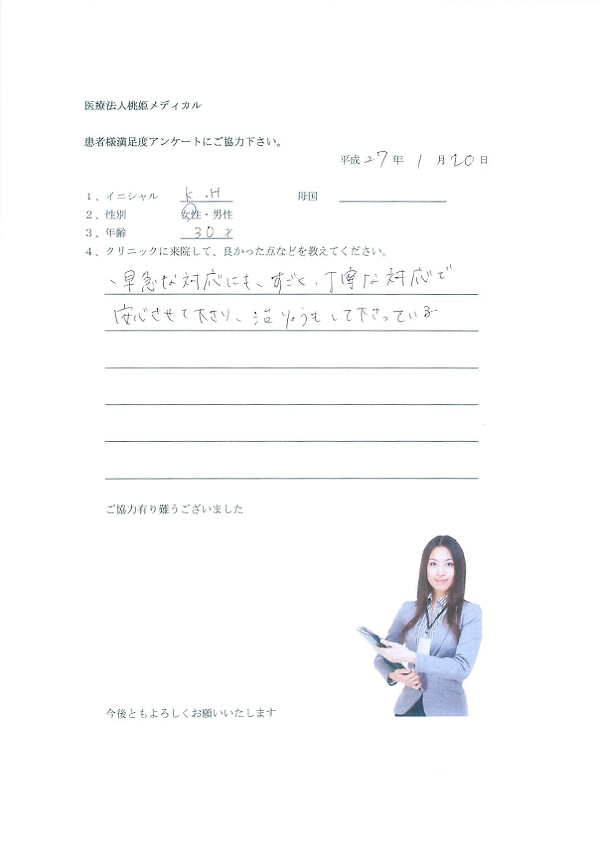 医療法人桃姫メディカル
患者様満足度アンケートにご協力下さい。
平成 27 年 1 月 20 日
1、イニシャル K.H 母国
2、性別 女性・男性
3、年齢 30才
4、クリニックに来院して、良かった点などを教えてください。
、早急な対応にも、すごく、丁寧な対応で
安心させて下さり、治りょうもして下さっている
ご協力有り難うございました
今後ともよろしくお願いいたします